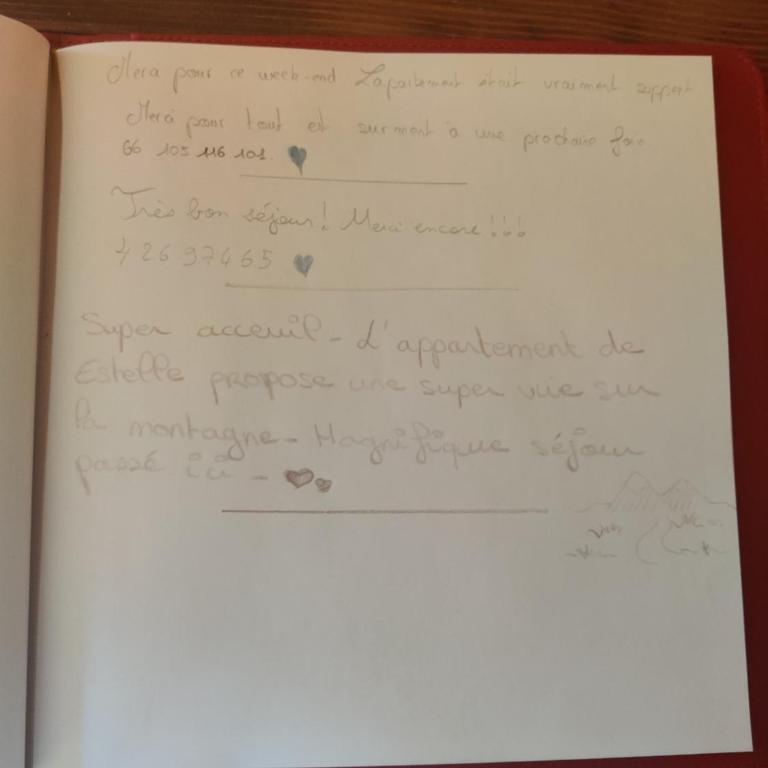 Merci pour ce week-end L'apartement était vraiment suppert
Merci pour tout et surment à une prochaine fois
66 105 116 101.
Très bon séjour! Merci encore!!!
42697465
Super acceuil - L'appartement de
Estelle propose une super vue sur
la montagne - Magnifique séjour
passé ici -